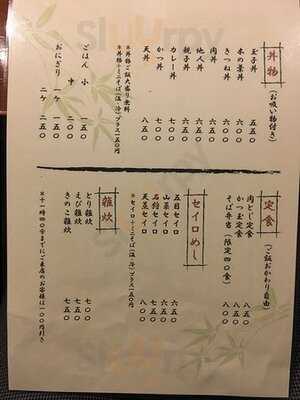 丼物
(お吸い物付き)
玉子丼 五五〇
木の葉丼
きつね丼
肉丼
他人丼 六五〇
親子丼 六五〇
カレー丼
かつ丼
天丼 八五〇
※丼物ご飯大盛り無料
※丼物+ミニそば(温・冷)プラス一五〇円
ごはん 小 一五〇
中 二〇〇
おにぎり 一ケ 一五〇
二ケ 二五〇
定食
(ご飯おかわり自由)
肉とじ定食 八五〇
かつ玉定食 八五〇
そば弁当(限定四〇食)
セイロめし
五目セイロ 六五〇
山菜セイロ 六五〇
セイロ
セイロ 八〇〇
※セイロ+ミニそば(温・冷)プラス一五〇円
雑炊
とり雑炊 七〇〇
えび雑炊 七五〇
きのこ雑炊 七五〇
※十一時四〇分までにご来店のお客様は一〇〇円引き